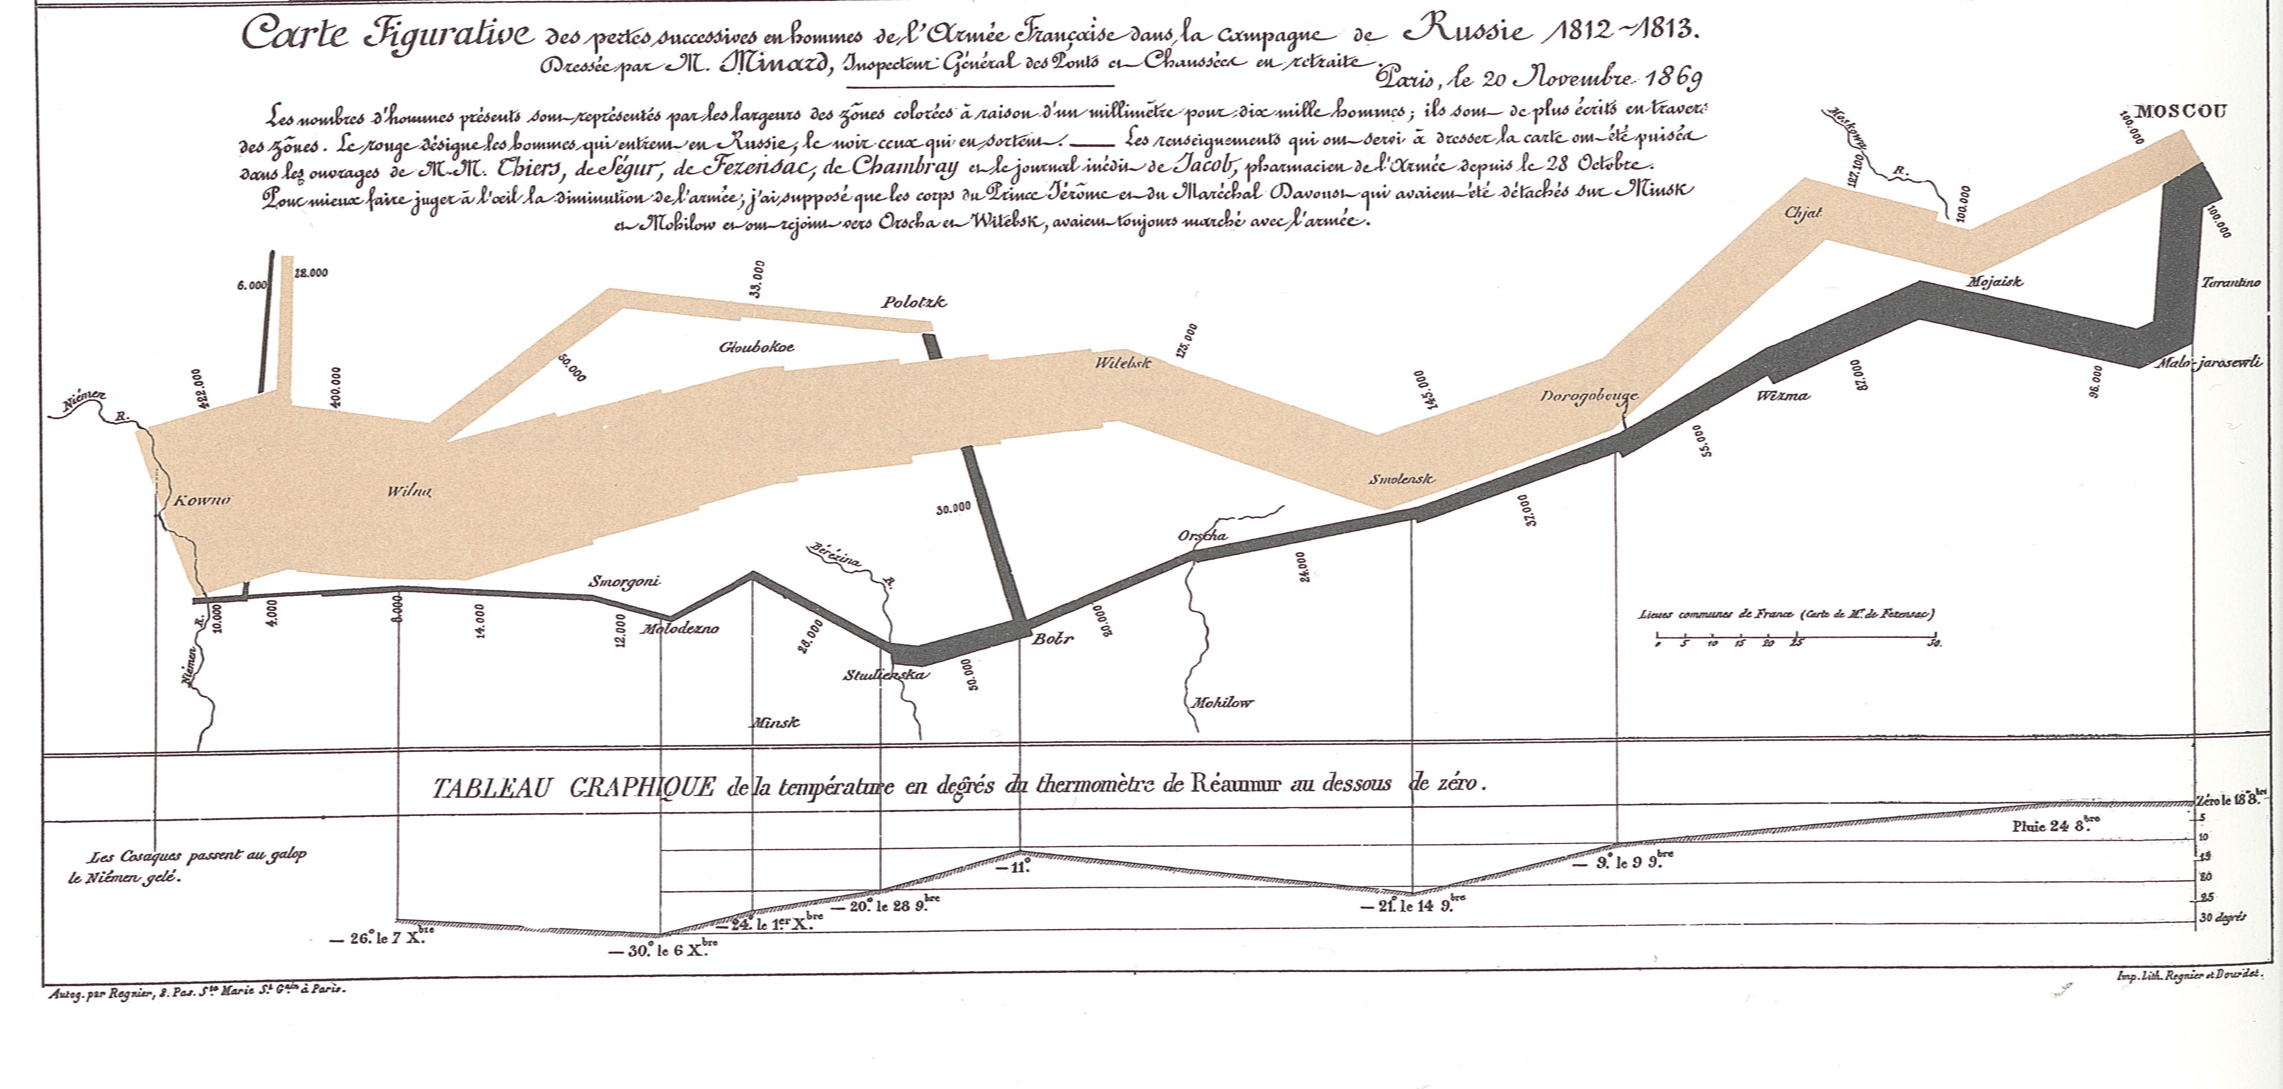 Carte Figurative des pertes successives en hommes de l'Armée Française dans la campagne de Russie 1812~1813.
Dressée par M. Minard, Inspecteur Général des Ponts et Chaussées en retraite.
Paris, le 20 Novembre 1869
Les nombres d'hommes présents sont représentés par les largeurs des zônes colorées à raison d'un millimètre pour dix mille hommes; ils sont de plus écrits en travers
des zônes. Le rouge désigne les hommes qui entrent en Russie, le noir ceux qui en sortent. — Les renseignements qui ont servi à dresser la carte ont été puisés
dans les ouvrages de M.M. Thiers, de Ségur, de Fezensac, de Chambray et le journal inédit de Jacob, pharmacien de l'Armée depuis le 28 Octobre.
Pour mieux faire juger à l'œil la diminution de l'armée, j'ai supposé que les corps du Prince Jérôme et du Maréchal Davoust qui avaient été détachés sur Minsk
et Mohilow et ont rejoint vers Orscha et Witebsk, avaient toujours marché avec l'armée.
MOSCOU
100.000
Moskowa
R.
127.100
100.000
Chjat
100.000
Mojaisk
Tarantino
Malo-jarosewli
6.000
22.000
33.000
Polotzk
Gloubokoe
60.000
Witebsk
175.000
145.000
Dorogobouge
Wizma
55.000
87.000
96.000
Niémen
R.
422.000
400.000
Kowno
Wilna
Smolensk
30.000
Orscha
37.000
24.000
Bérézina
R.
Smorgoni
Molodezno
10.000
4.000
8.000
14.000
12.000
28.000
Studienska
50.000
Bobr
20.000
Niémen
R.
Minsk
Mohilow
Lieues communes de France (Carte de M. de Fezensac)
0 5 10 15 20 25 50.
TABLEAU GRAPHIQUE de la température en degrés du thermomètre de Réaumur au dessous de zéro.
Zéro le 18 8.bre
5
10
15
20
25
30 degrés
Pluie 24 8.bre
— 9.° le 9 9.bre
— 21.° le 14 9.bre
— 11.°
— 20.° le 28 9.bre
— 24.° le 1.er X.bre
— 30.° le 6 X.bre
— 26.° le 7 X.bre
Les Cosaques passent au galop
le Niémen gelé.
Autog. par Regnier, 8. Pas. Ste Marie St Gain à Paris.
Imp. Lith. Regnier et Dourdet.